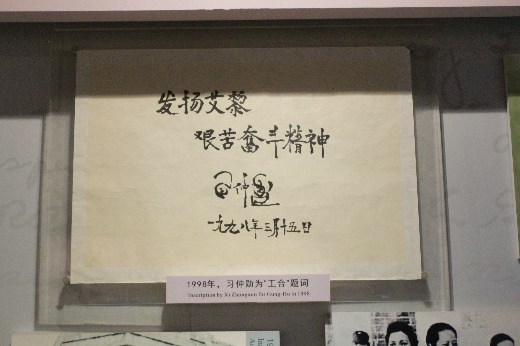 发扬艾黎
艰苦奋斗精神
习仲勋
一九九八年三月十五日
1998年，习仲勋为“工合”题词
Inscription by Xi Zhongxun for Gung-Ho in 1998